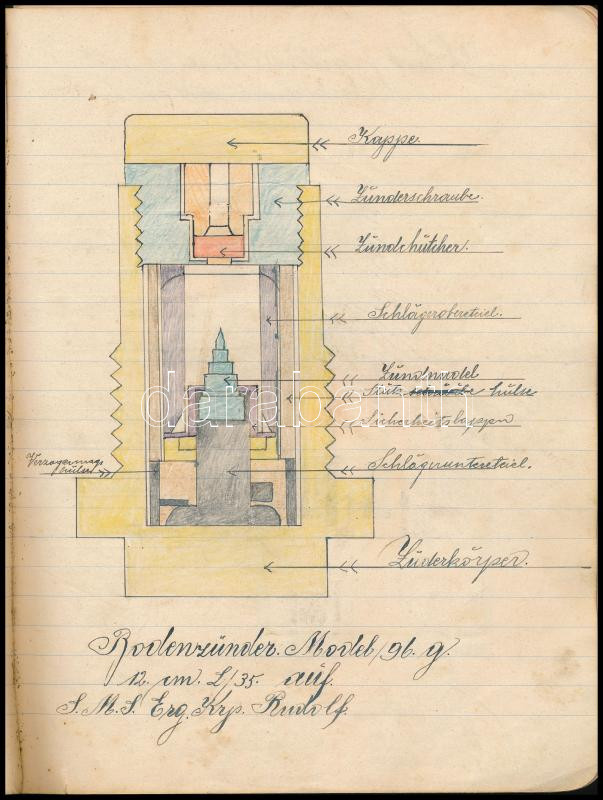 Kappe.
Zünderschraube.
Zündhütcher.
Schlägeroberteiel.
Zündnadel
Stütz schraube hülse
Sicherheitslappen
Verzögerungs
hülse
Schlägerunterteiel.
Züderkörper.
Bodenzünder. Model/96. g.
12. cm. L/35. auf.
S. M. S. Erg. Krp. Rudolf.
darabanth